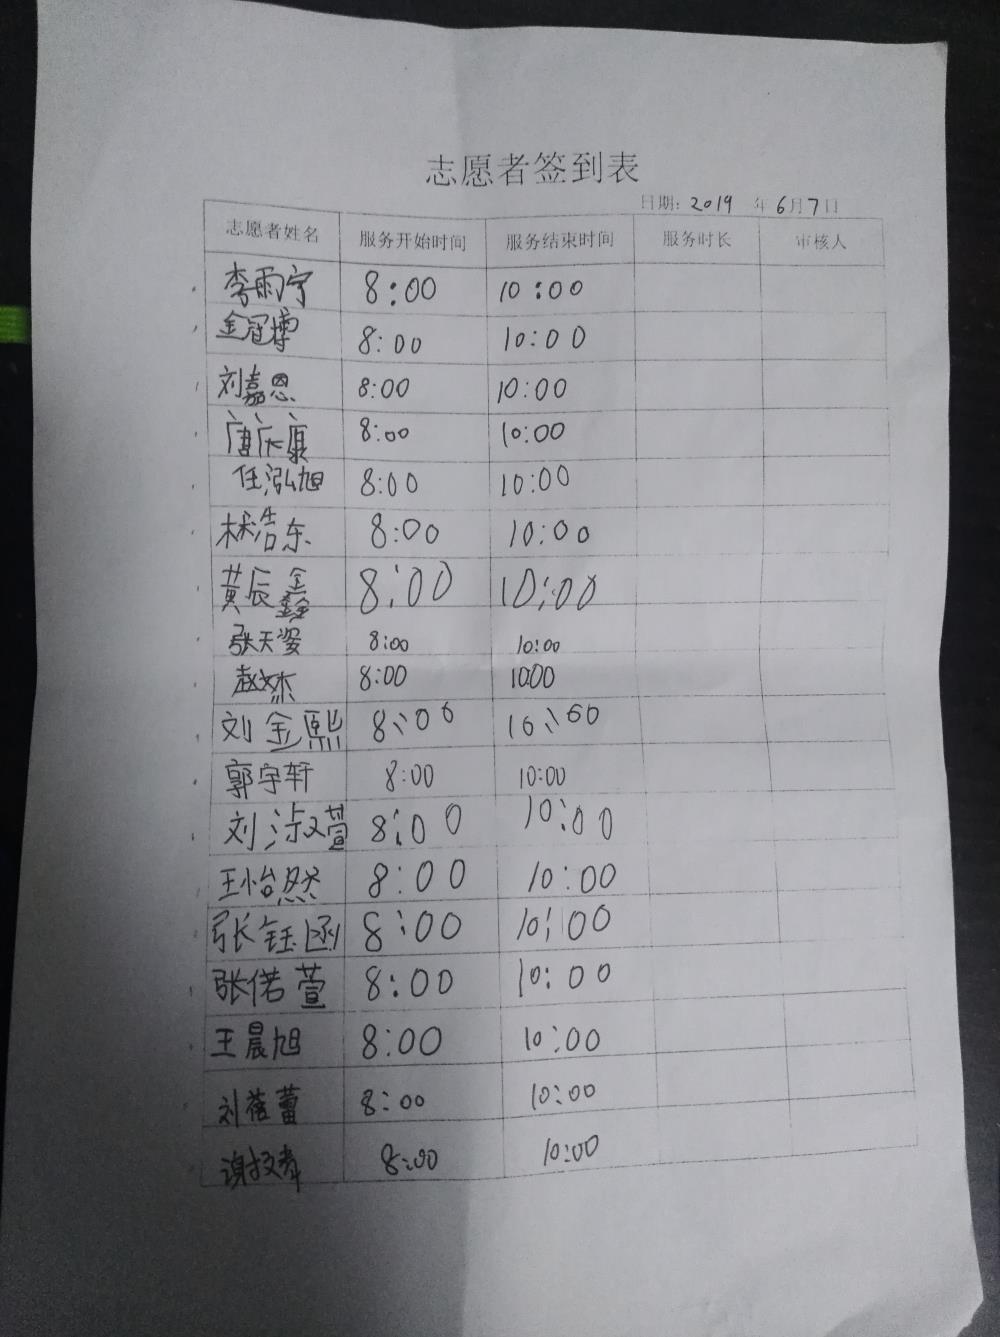 志愿者签到表
日期: 2019 年 6月7日
志愿者姓名 服务开始时间 服务结束时间 服务时长 审核人
李雨宁 8:00 10:00
金冠博 8:00 10:00
刘嘉恩 8:00 10:00
唐庆康 8:00 10:00
任泓旭 8:00 10:00
林浩东 8:00 10:00
黄辰鑫 8:00 10:00
张天姿 8:00 10:00
赵杰 8:00 10:00
刘金熙 8:00 10:00
郭宇轩 8:00 10:00
刘淑萱 8:00 10:00
王怡然 8:00 10:00
张钰函 8:00 10:00
张偌萱 8:00 10:00
王晨旭 8:00 10:00
刘蕾 8:00 10:00
谢 8:00 10:00